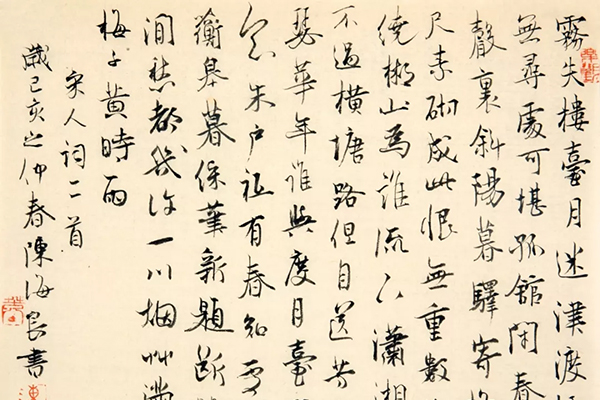 霧失樓臺月迷津渡
無尋處可堪孤館閉春
聲裏斜陽暮驛寄
尺素砌成此恨無重數
繞郴山爲誰流下瀟湘
不過橫塘路但目送芳
瑟華年誰與度月臺
窗朱户祇有春知處
蘅皋暮綵筆新題斷
閒愁都幾許一川烟艸滿
梅子黄時雨
宋人詞二首
歲己亥之仲春陳海良書